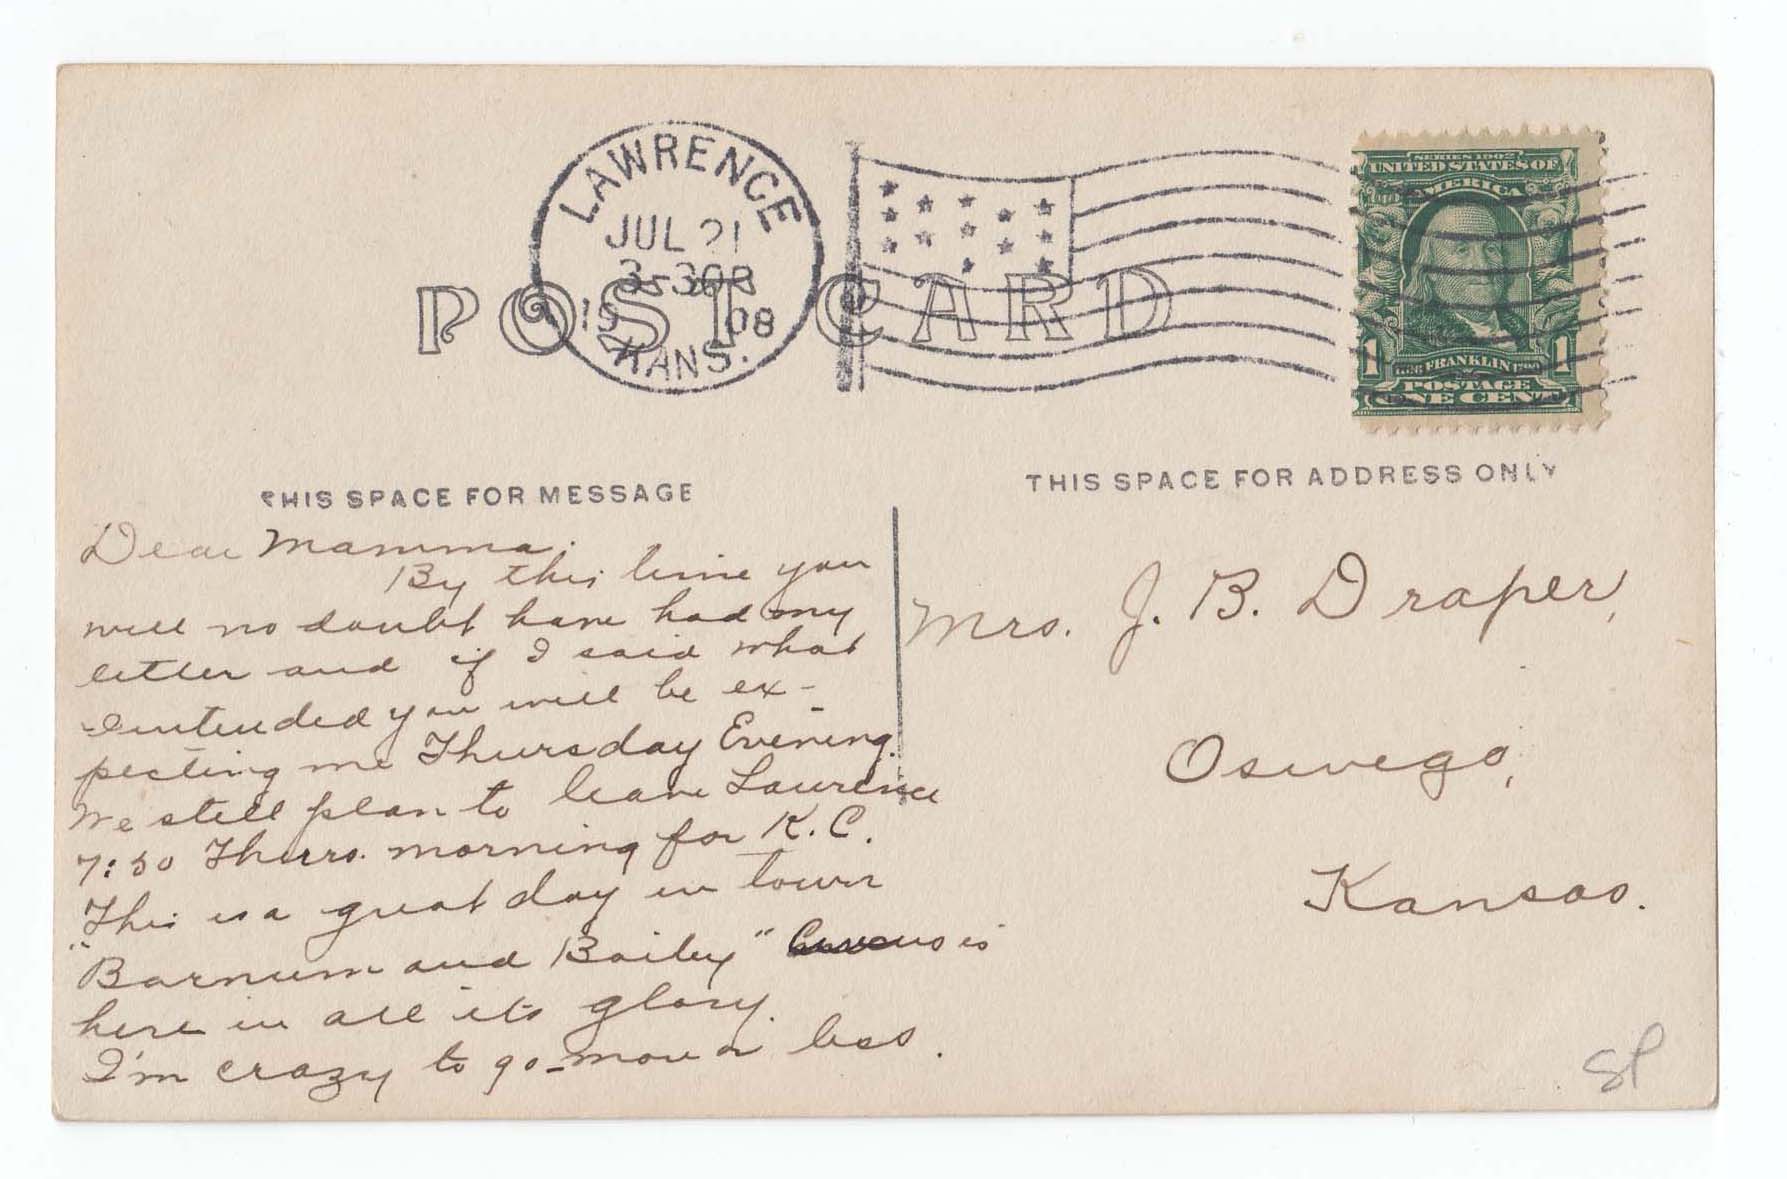 LAWRENCE
JUL 21
3-30P
1908
KANS.
SERIES 1902
UNITED STATES OF
AMERICA
1 FRANKLIN 1
POSTAGE
ONE CENT
POST CARD
THIS SPACE FOR MESSAGE
THIS SPACE FOR ADDRESS ONLY
Dear Mamma.
By this time you
will no doubt have had my
letter and if I said what
I intended you will be ex-
pecting me Thursday Evening.
We still plan to leave Lawrence
7:50 Thurs. morning for K. C.
This is a great day in town
"Barnum and Bailey" Circus is
here in all its glory.
I'm crazy to go - more or less.
Mrs. J. B. Draper,
Oswego,
Kansas.
SP